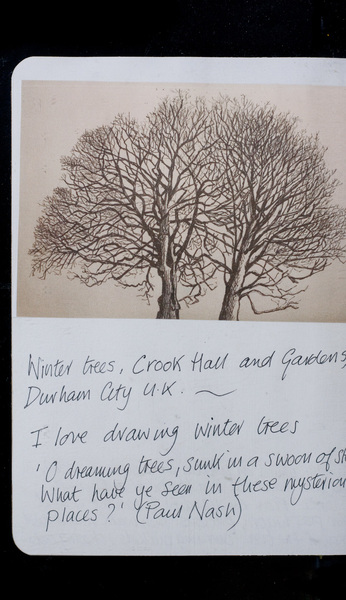 Winter trees, Crook Hall and Gardens,
Durham City U.K. ~
I love drawing winter trees
'O dreaming trees, sunk in a swoon of
What have ye seen in these
places?' (Paul Nash)